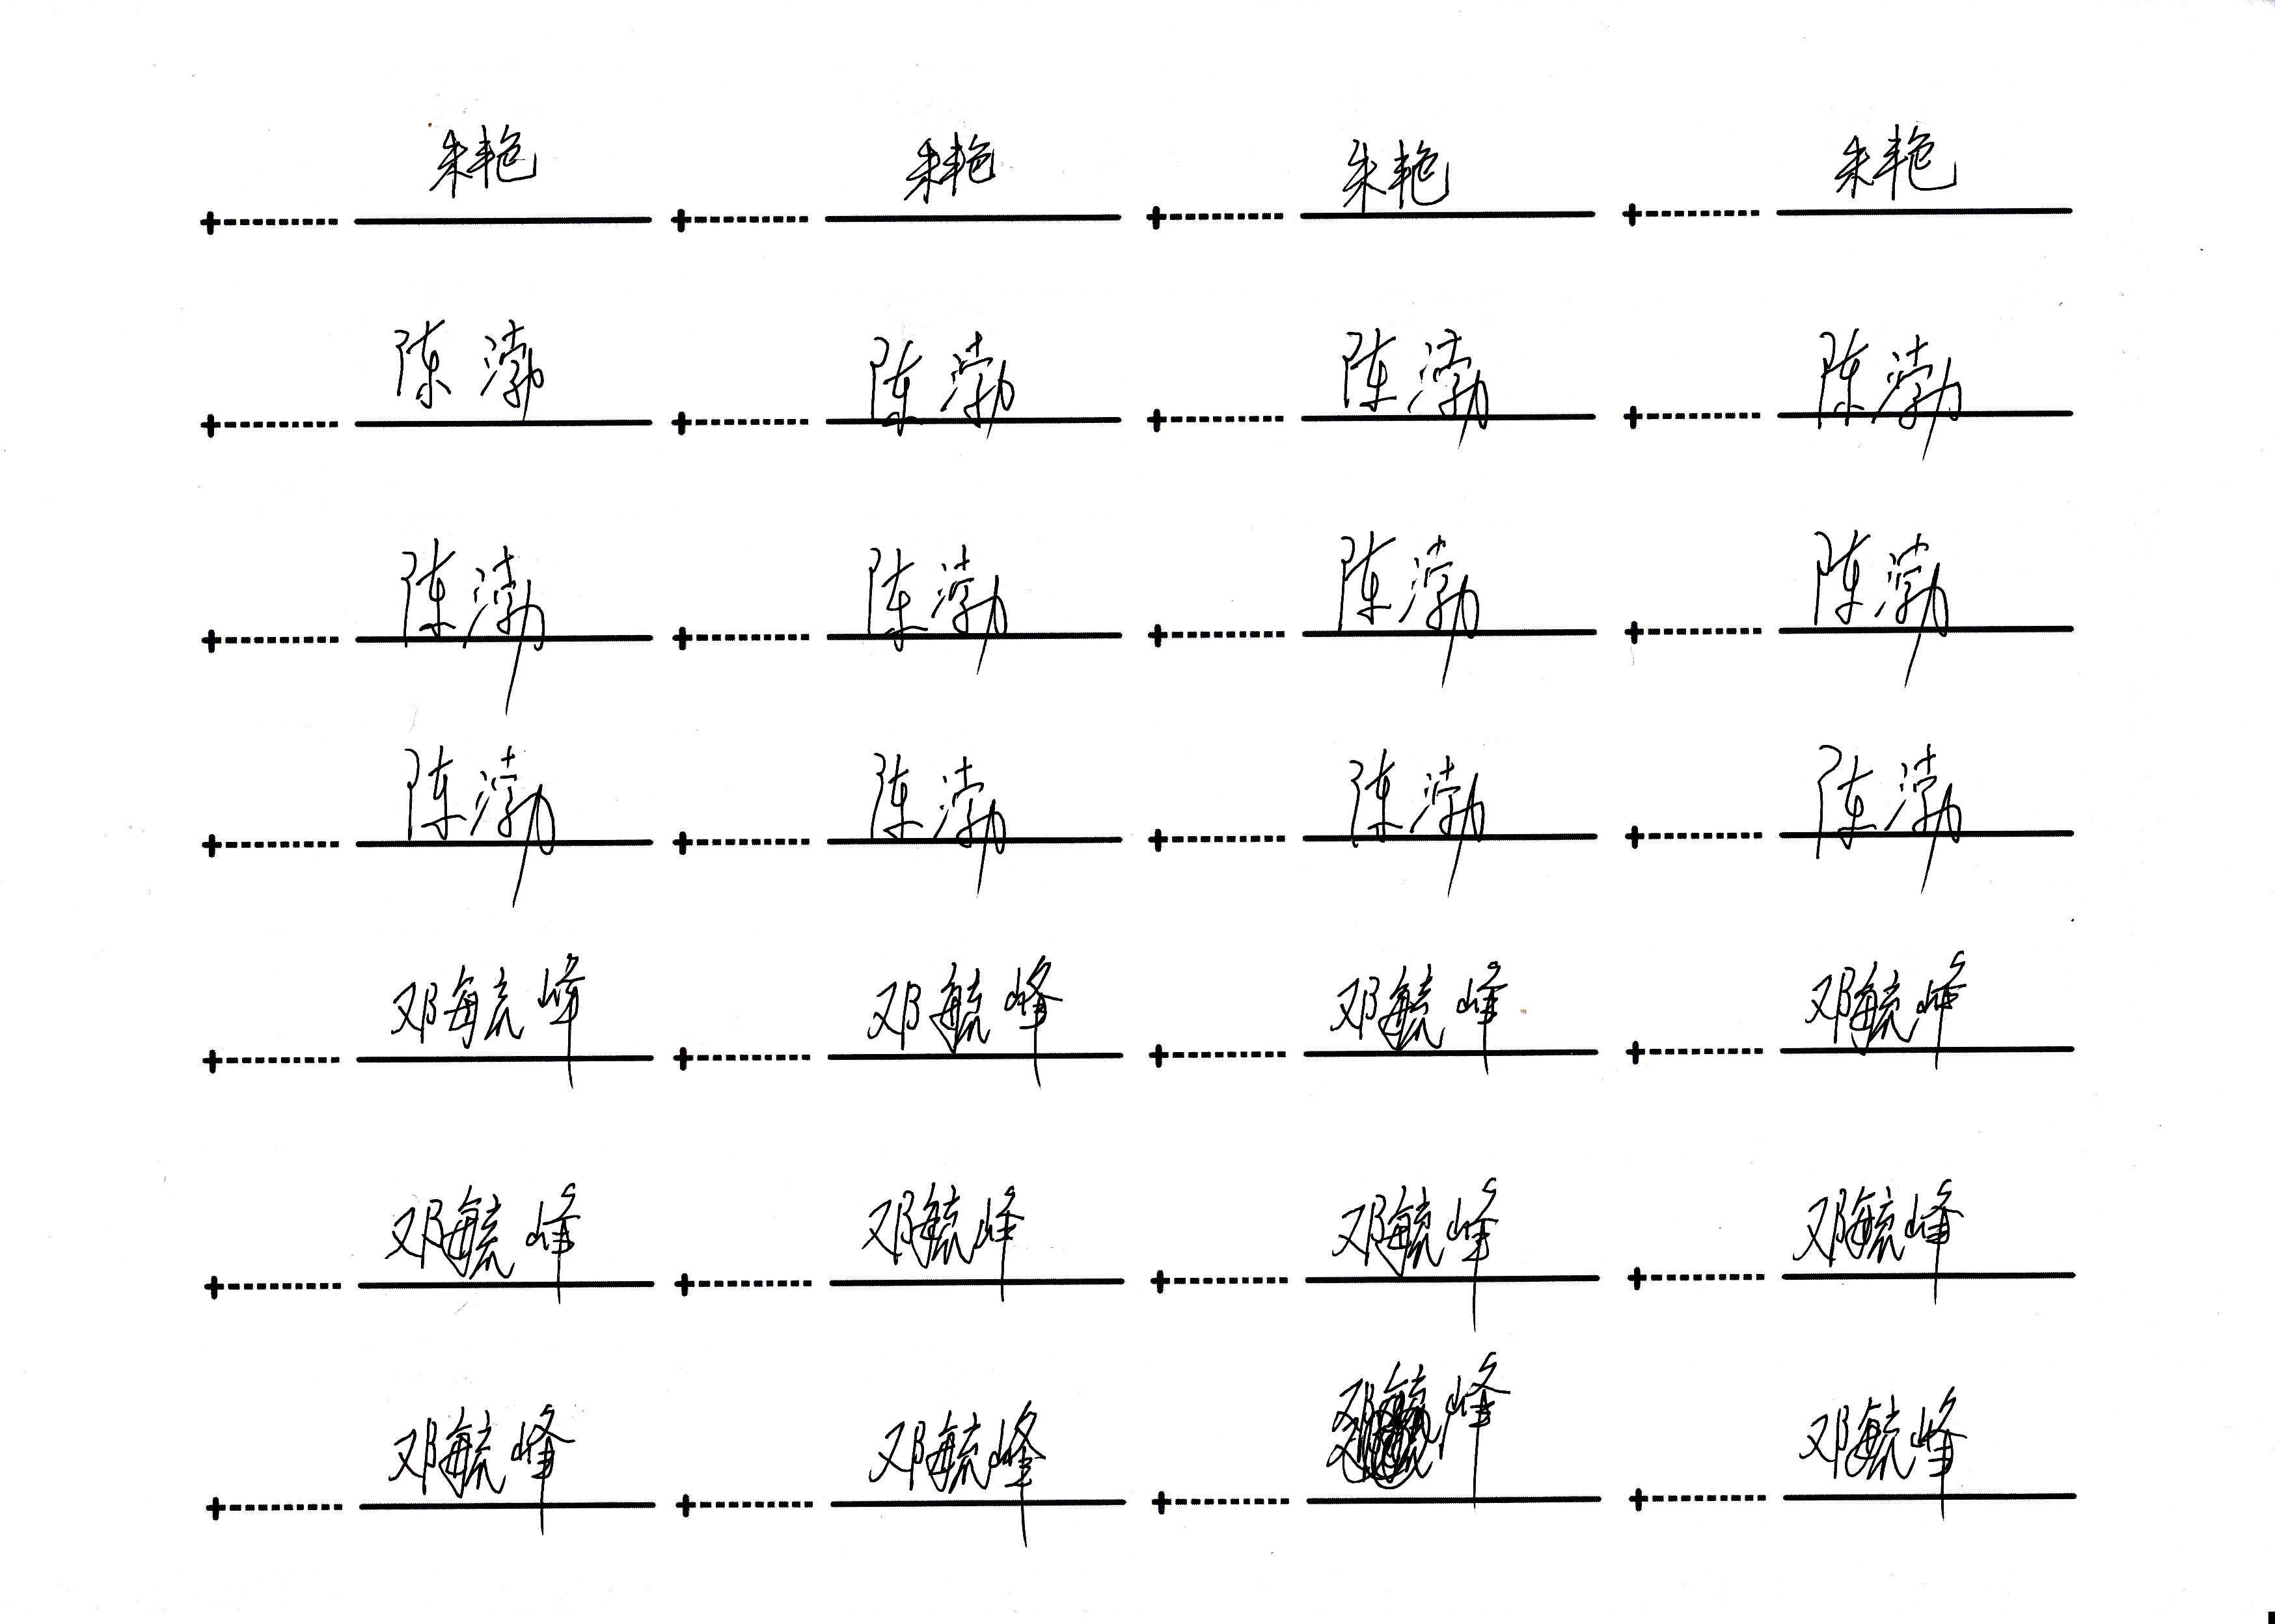 朱艳 朱艳 朱艳 朱艳
陈渤 陈渤 陈渤 陈渤
陈渤 陈渤 陈渤 陈渤
陈渤 陈渤 陈渤 陈渤
邓毓峰 邓毓峰 邓毓峰 邓毓峰
邓毓峰 邓毓峰 邓毓峰 邓毓峰
邓毓峰 邓毓峰 峰 邓毓峰